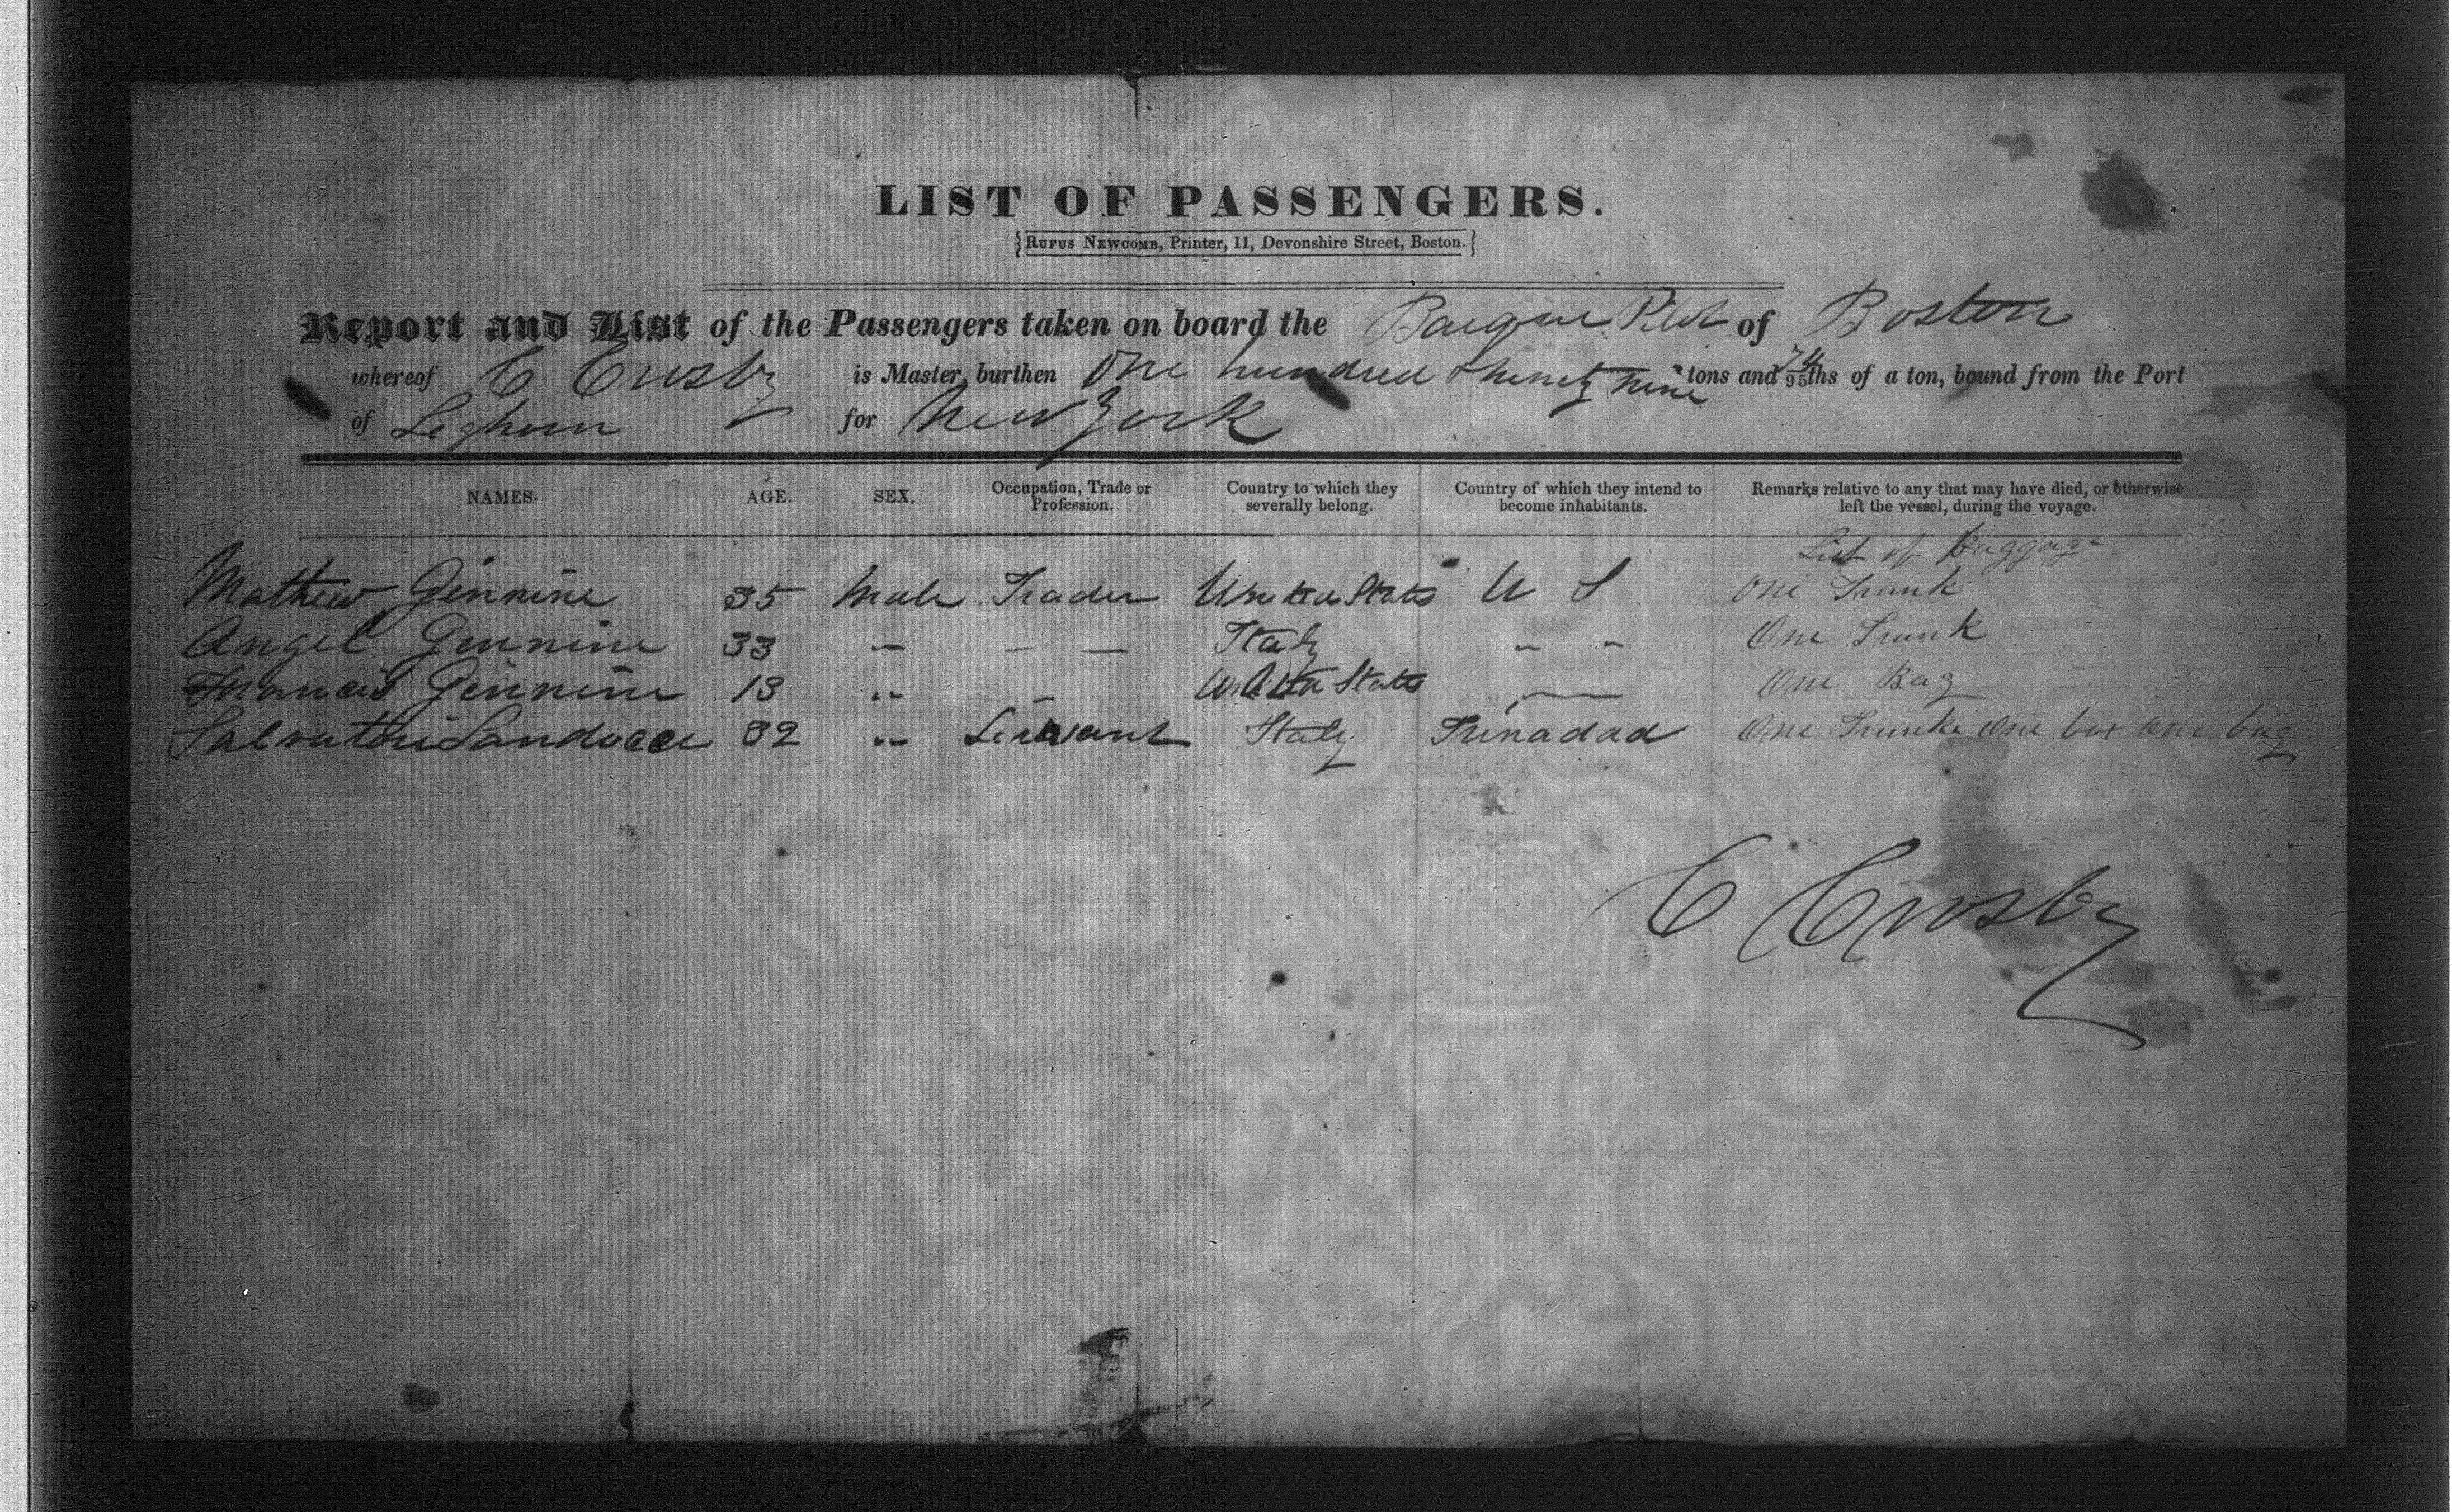 LIST OF PASSENGERS.
{RUFUS NEWCOMB, Printer, 11, Devonshire Street, Boston.}
Report and List of the Passengers taken on board the Barque Pilot of Boston
whereof C Crosby is Master, burthen One hundred & ninety nine tons and 74/95ths of a ton, bound from the Port
of Leghorn for New York
NAMES. AGE. SEX. Occupation, Trade or Profession. Country to which they severally belong. Country of which they intend to become inhabitants. Remarks relative to any that may have died, or otherwise left the vessel, during the voyage.
List of Baggage
Mathew Gennine 35 Male Trader United States U S One Trunk
Angel Gennine 33 " — — Italy " " One Trunk
Francis Gennine 13 " — United States — One Bag
Salvatori 32 " Servant Italy Trinadad One Trunk One box one bag
C Crosby